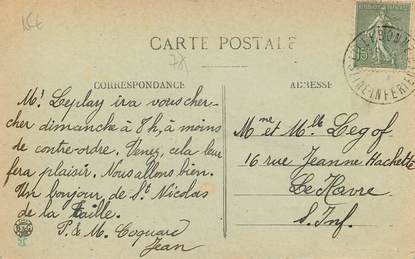 15€
CARTE POSTALE
78
CORRESPONDANCE
ADRESSE
Mr Leplay ira vous cher-
cher dimanche à 8h, à moins
de contre-ordre. Venez, cela leur
fera plaisir. Nous allons bien.
Un bonjour de St Nicolas
de la Taille.
P. & M. Coquard
Jean
Mme et Mlle Legof
16 rue Jeanne Hachette
Le Havre
S. Inf.
SEINE INFERIEURE